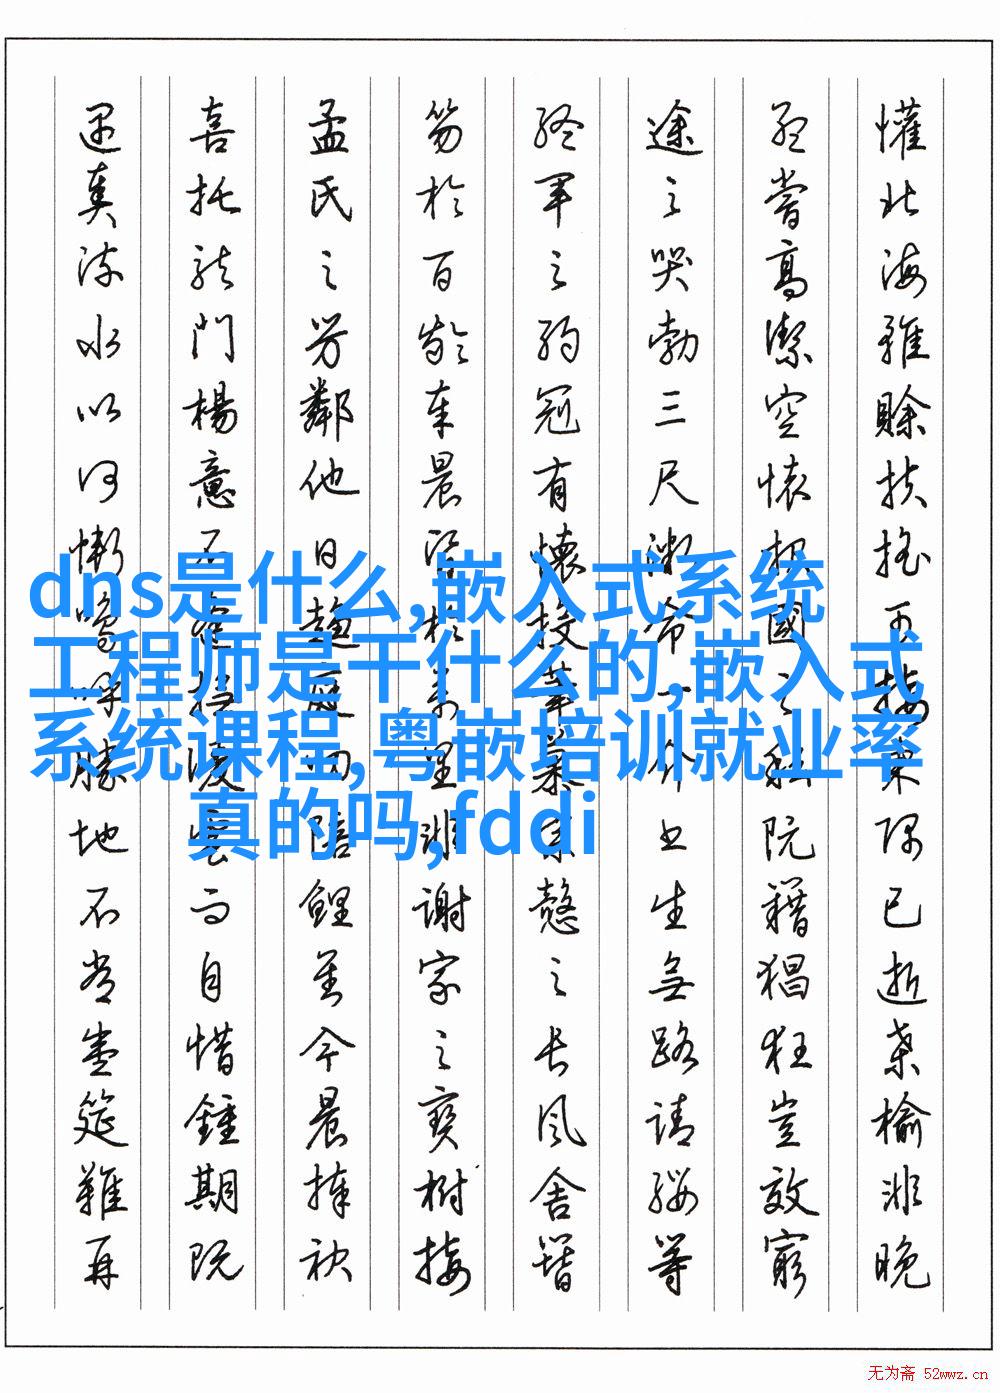 懽北海雖賒扶搖可接東隅已逝桑榆非晚
孟嘗高潔空懷報國之阮籍猖狂豈效窮
途之哭勃三尺微命一介書生無路請纓等
終軍之弱冠有懷投筆慕宗愨之長風舍簪
笏於百齡奉晨昏於萬里非謝家之寶樹接
孟氏之芳鄰他日趨庭叨陪鯉對今晨捧袂
喜托龍門楊意不逢撫凌雲而自惜鍾期既
遇奏流水以何慚嗚呼勝地不常盛筵難再
dns是什么,嵌入式系统
工程师是干什么的,嵌入式
系统课程,粤嵌培训就业率
真的吗,fddi
无为斋 52wwz.cn